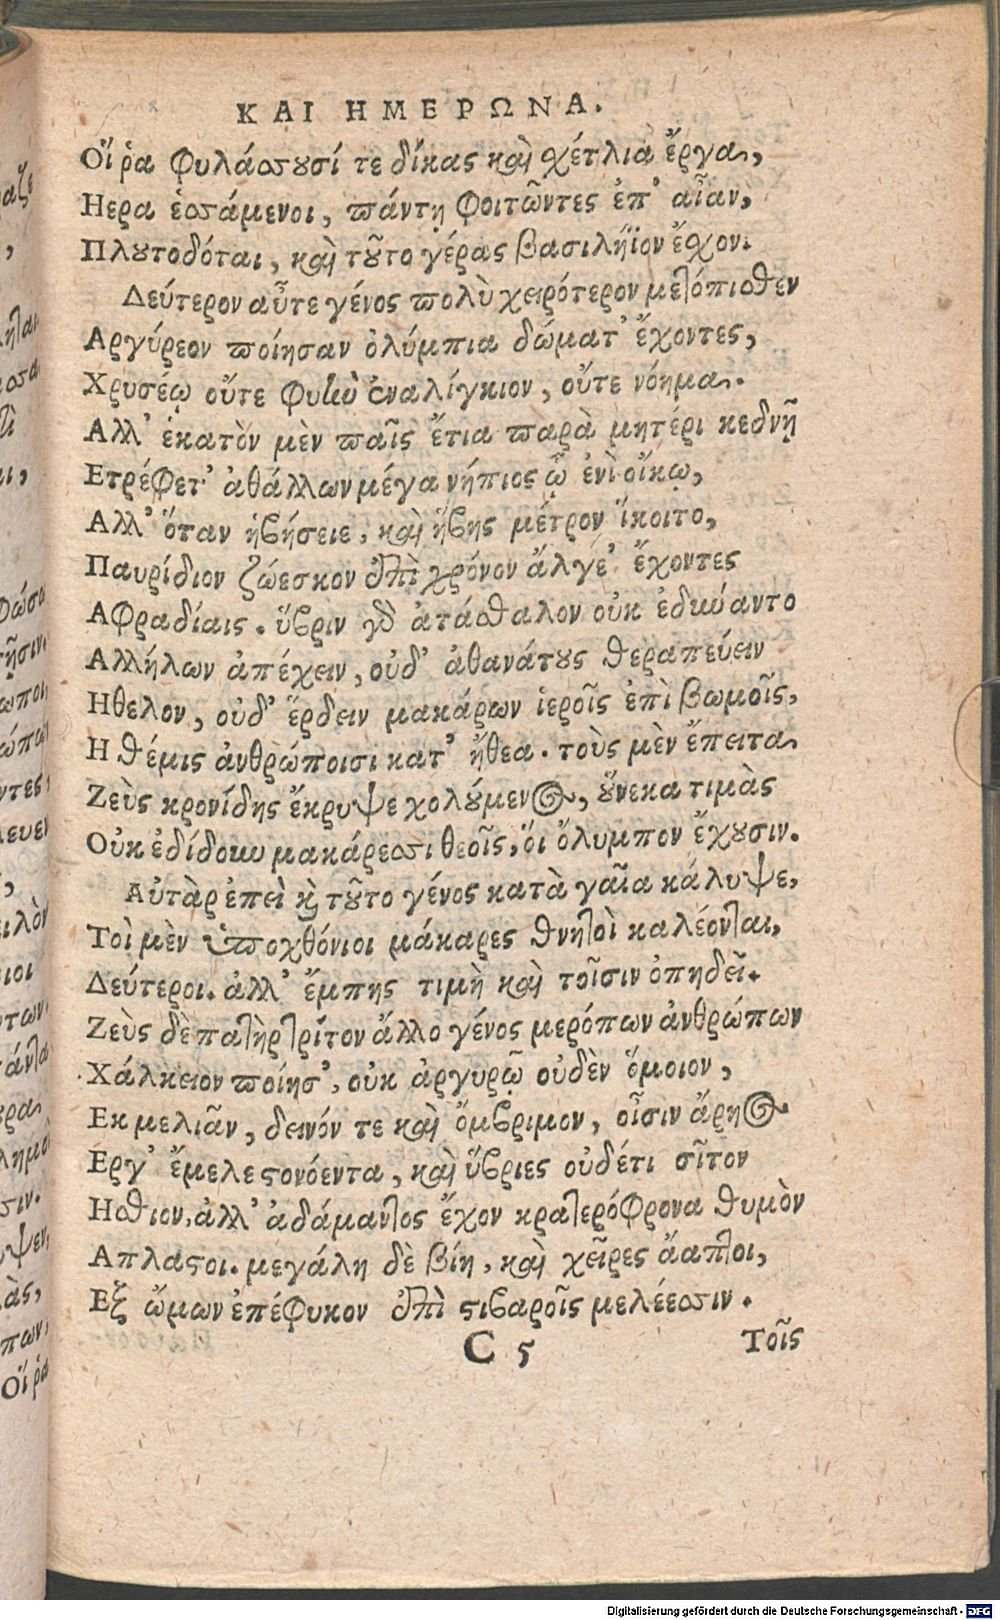 ΚΑΙ ΗΜΕΡΩΝ Α.
Οἵ ῥα φυλάσσουσί τε δίκας καὶ σχέτλια ἔργα,
Ηερα ἑσσάμενοι, πάντῃ φοιτῶντες ἐπ' αἶαν,
Πλουτοδόται, καὶ τοῦτο γέρας βασιλήϊον ἔσχον.
Δεύτερον αὖτε γένος πολὺ χειρότερον μετόπισθεν
Αργύρεον ποίησαν ὀλύμπια δώματ' ἔχοντες,
Χρυσέῳ οὔτε φυὴν ἐναλίγκιον, οὔτε νόημα.
Αλλ' ἑκατὸν μὲν παῖς ἔτια παρὰ μητέρι κεδνῇ
Ετρέφετ' ἀθάλλων μέγα νήπιος ᾧ ἐνὶ οἴκῳ,
Αλλ' ὅταν ἡβήσειε, καὶ ἥβης μέτρον ἵκοιτο,
Παυρίδιον ζώεσκον ἐπὶ χρόνον ἄλγε' ἔχοντες
Αφραδίαις. ὕβριν γὰρ ἀτάσθαλον οὐκ ἐδύναντο
Αλλήλων ἀπέχειν, οὐδ' ἀθανάτους θεραπεύειν
Ηθελον, οὐδ' ἔρδειν μακάρων ἱεροῖς ἐπὶ βωμοῖς,
Η θέμις ἀνθρώποισι κατ' ἤθεα. τοὺς μὲν ἔπειτα
Ζεὺς κρονίδης ἔκρυψε χολούμενος, οὕνεκα τιμὰς
Οὐκ ἐδίδουν μακάρεσσι θεοῖς, οἳ ὄλυμπον ἔχουσιν.
Αὐτὰρ ἐπεὶ καὶ τοῦτο γένος κατὰ γαῖα κάλυψε,
Τοὶ μὲν ὑποχθόνιοι μάκαρες θνητοὶ καλέονται,
Δεύτεροι. ἀλλ' ἔμπης τιμὴ καὶ τοῖσιν ὀπηδεῖ.
Ζεὺς δὲ πατὴρ τρίτον ἄλλο γένος μερόπων ἀνθρώπων
Χάλκειον ποίησ', οὐκ ἀργυρῷ οὐδὲν ὅμοιον,
Εκ μελιᾶν, δεινόν τε καὶ ὄμβριμον, οἷσιν ἄρηος
Εργ' ἔμελε στονόεντα, καὶ ὕβριες οὐδέτι σῖτον
Ησθιον, ἀλλ' ἀδάμαντος ἔχον κρατερόφρονα θυμὸν
Απλαστοι. μεγάλη δὲ βίη, καὶ χεῖρες ἄαπτοι,
Εξ ὤμων ἐπέφυκον ἐπὶ στιβαροῖς μελέεσσιν.
C 5 Τοῖς
Digitalisierung gefördert durch die Deutsche Forschungsgemeinschaft - DFG